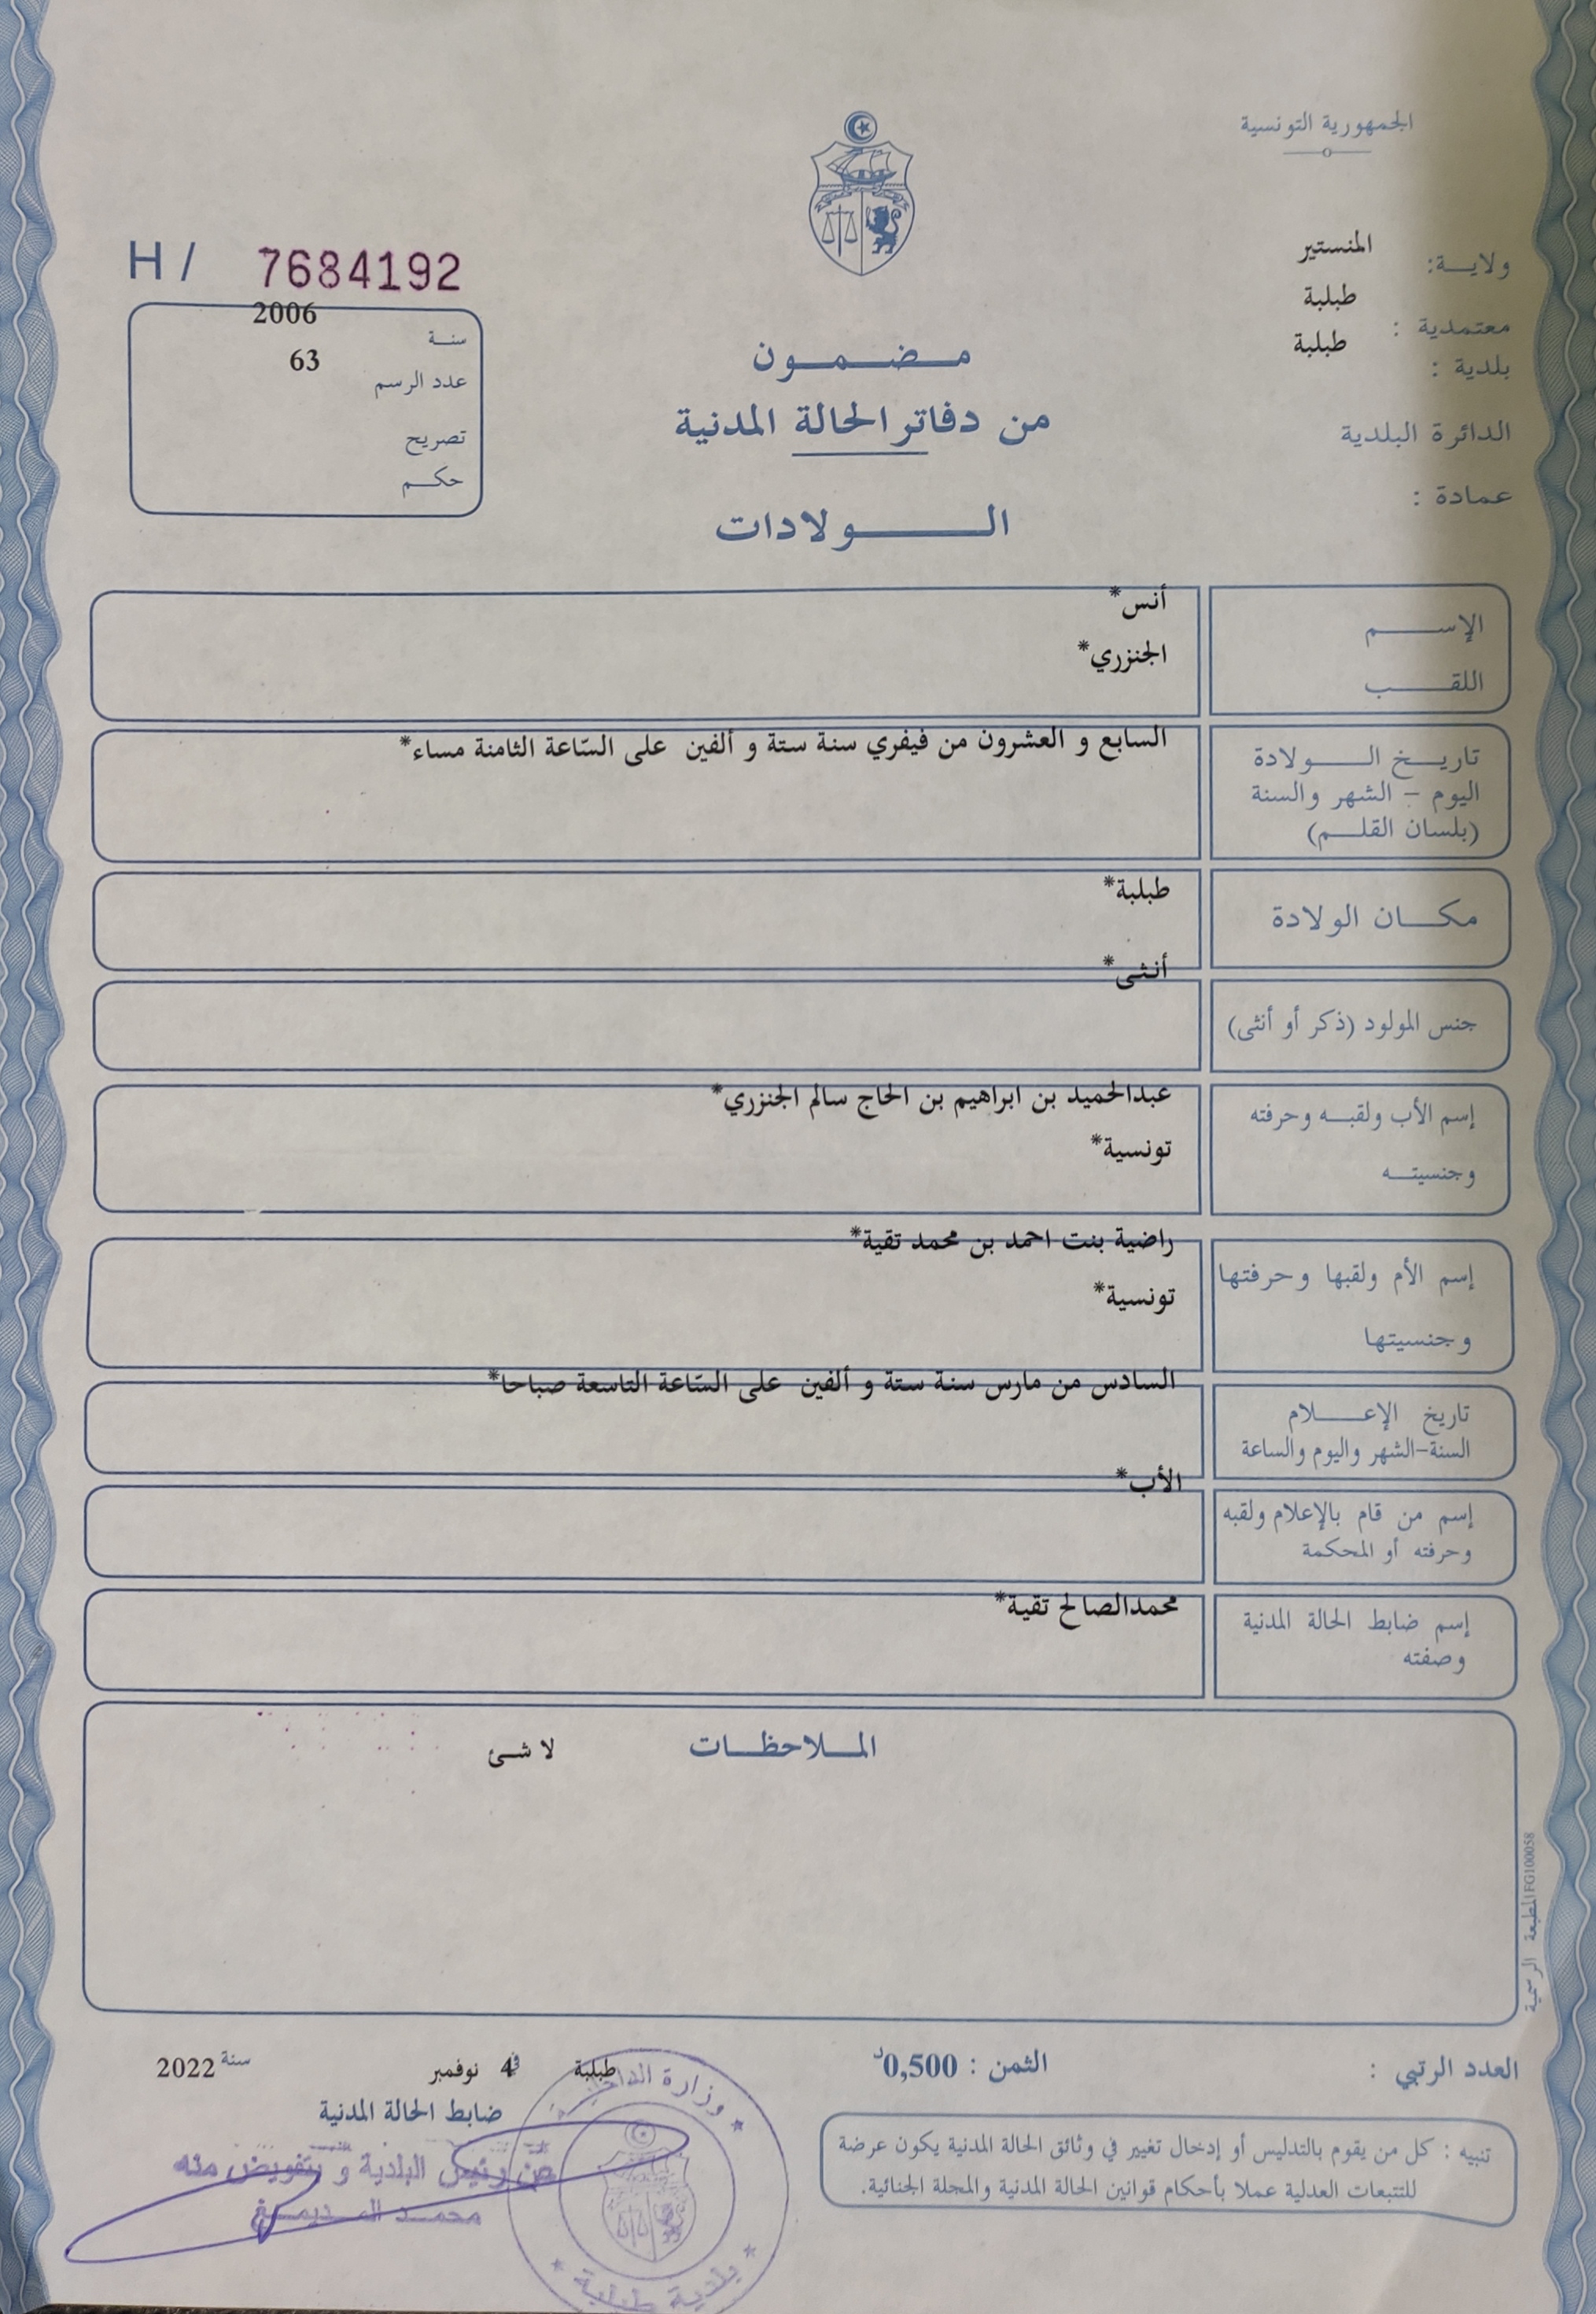 الجمهورية التونسية
ولايـــة: المنستير
معتمدية : طبلبة
بلدية : طبلبة
الدائرة البلدية
عمادة :
H / 7684192
سنـة 2006
عدد الرسم 63
تصريح
حكـم
مـضـمـون
من دفاتر الحالة المدنية
الـــولادات
الإســـم أنس*
اللقـــب الجنزري*
تاريـخ الـــولادة
اليوم - الشهر والسنة
(بلسان القلـم)
السابع و العشرون من فيفري سنة ستة و ألفين على السّاعة الثامنة مساء*
مكـــان الولادة طبلبة*
جنس المولود (ذكر أو أنثى) أنثى*
إسم الأب ولقبـه وحرفته عبدالحميد بن ابراهيم بن الحاج سالم الجنزري*
وجنسيتـه تونسية*
إسم الأم ولقبها وحرفتها راضية بنت احمد بن محمد تقية*
وجنسيتها تونسية*
تاريخ الإعــلام
السنة-الشهر واليوم والساعة
السادس من مارس سنة ستة و ألفين على السّاعة التاسعة صباحا*
إسم من قام بالإعلام ولقبه
وحرفته أو المحكمة
الأب*
إسم ضابط الحالة المدنية
وصفته
محمدالصالح تقية*
المـلاحظـات لا شئ
المطبعة الرسمية FG100058
العدد الرتبي :
الثمن : 0,500د
طبلبة في 4 نوفمبر سنة 2022
ضابط الحالة المدنية
عن رئيس البلدية و بتفويض منه
محمـد
وزارة الداخلية
بلدية طبلبة
تنبيه : كل من يقوم بالتدليس أو إدخال تغيير في وثائق الحالة المدنية يكون عرضة
للتتبعات العدلية عملا بأحكام قوانين الحالة المدنية والمجلة الجنائية.